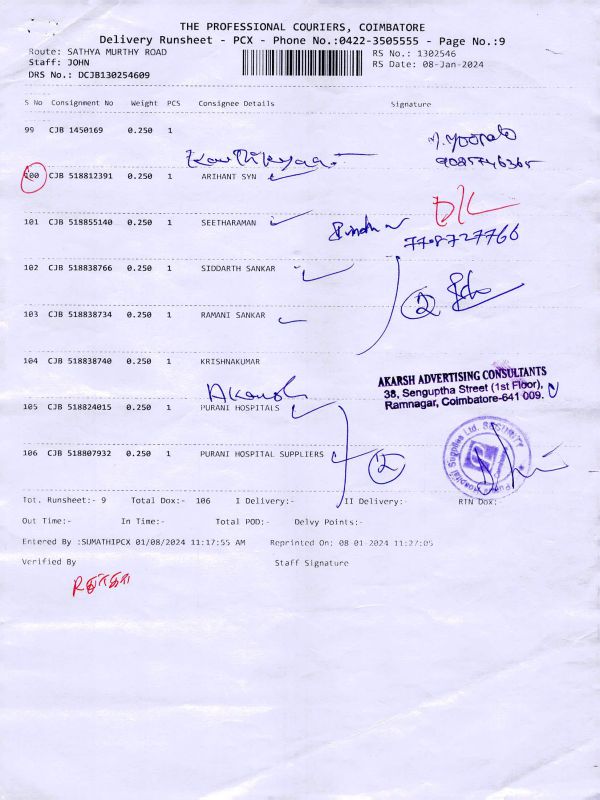 THE PROFESSIONAL COURIERS, COIMBATORE
Delivery Runsheet - PCX - Phone No.:0422-3505555 - Page No.:9
Route: SATHYA MURTHY ROAD RS No.: 1302546
Staff: JOHN RS Date: 08-Jan-2024
DRS No.: DCJB130254609
S No Consignment No Weight PCS Consignee Details Signature
99 CJB 1450169 0.250 1
9085746365
CJB 518812391 0.250 1 ARIHANT SYN
101 CJB 518855140 0.250 1 SEETHARAMAN
7708727766
102 CJB 518838766 0.250 1 SIDDARTH SANKAR
2
103 CJB 518838734 0.250 1 RAMANI SANKAR
104 CJB 518838740 0.250 1 KRISHNAKUMAR
AKARSH ADVERTISING CONSULTANTS
38, Senguptha Street (1st Floor),
Ramnagar, Coimbatore-641 009.
Akarsh
105 CJB 518824015 1 PURANI HOSPITALS
0.250
106 CJB 518807932 0.250 1 PURANI HOSPITAL SUPPLIERS
2
Hospital Supplies Ltd. SECURITY
Tot. Runsheet:- 9 Total Dox:- 106 I Delivery:- II Delivery:- RTN Dox:-
Out Time:- In Time:- Total POD:- Delvy Points:-
Entered By :SUMATHIPCX 01/08/2024 11:17:55 AM Reprinted On: 08-01-2024 11:27:05
Verified By Staff Signature